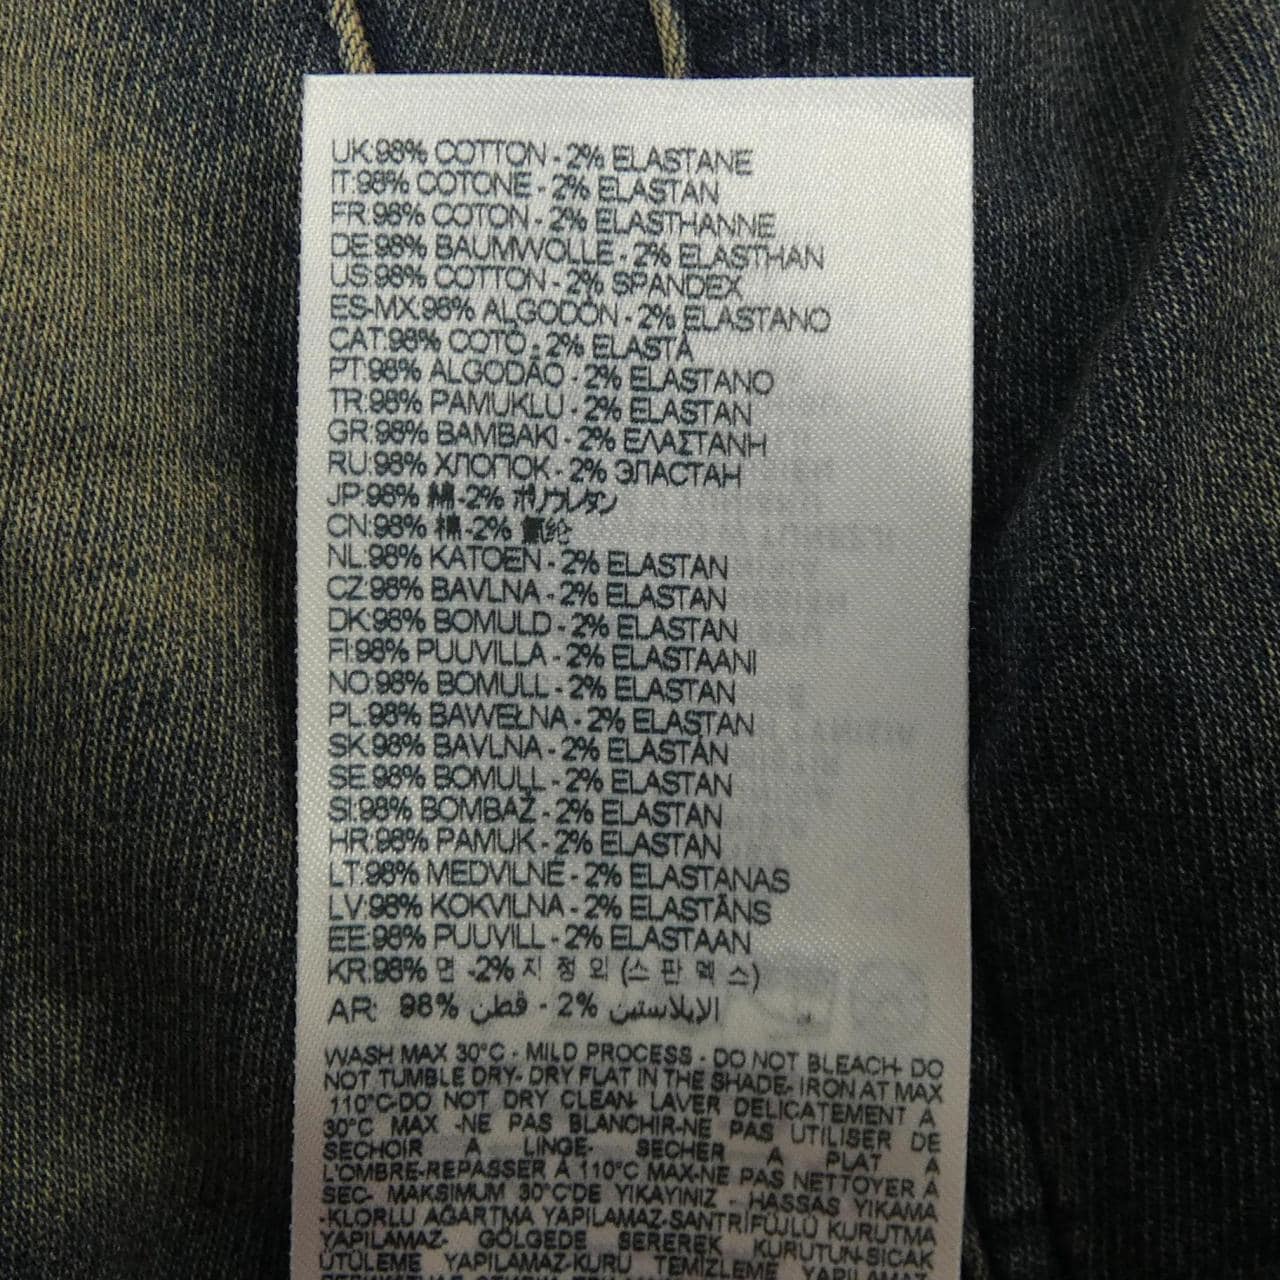 UK:98% COTTON - 2% ELASTANE
IT:98% COTONE - 2% ELASTAN
FR:98% COTON - 2% ELASTHANNE
DE:98% BAUMWOLLE - 2% ELASTHAN
US:98% COTTON - 2% SPANDEX
ES-MX:98% ALGODÓN - 2% ELASTANO
CAT:98% COTÓ - 2% ELASTÀ
PT:98% ALGODÃO - 2% ELASTANO
TR:98% PAMUKLU - 2% ELASTAN
GR:98% ΒΑΜΒΑΚΙ - 2% ΕΛΑΣΤΑΝΗ
RU:98% ХЛОПОК - 2% ЭЛАСТАН
JP:98% 綿 -2% ポリウレタン
CN:98% 棉 -2% 氨纶
NL:98% KATOEN - 2% ELASTAN
CZ:98% BAVLNA - 2% ELASTAN
DK:98% BOMULD - 2% ELASTAN
FI:98% PUUVILLA - 2% ELASTAANI
NO:98% BOMULL - 2% ELASTAN
PL:98% BAWEŁNA - 2% ELASTAN
SK:98% BAVLNA - 2% ELASTAN
SE:98% BOMULL - 2% ELASTAN
SI:98% BOMBAŽ - 2% ELASTAN
HR:98% PAMUK - 2% ELASTAN
LT:98% MEDVILNE - 2% ELASTANAS
LV:98% KOKVILNA - 2% ELASTĀNS
EE:98% PUUVILL - 2% ELASTAAN
KR:98% 면 -2% 지 정 외 (스 판 덱 스)
AR: 98% قطن - 2% الايلاستين
WASH MAX 30°C - MILD PROCESS - DO NOT BLEACH- DO
NOT TUMBLE DRY- DRY FLAT IN THE SHADE- IRON AT MAX
110°C-DO NOT DRY CLEAN- LAVER DELICATEMENT A
30°C MAX -NE PAS BLANCHIR-NE PAS UTILISER DE
SECHOIR A LINGE- SECHER A PLAT A
L'OMBRE-REPASSER À 110°C MAX-NE PAS NETTOYER A
SEC- MAKSIMUM 30°C'DE YIKAYINIZ - HASSAS YIKAMA
-KLORLU AĞARTMA YAPILAMAZ-SANTRİFÜJLÜ KURUTMA
YAPILAMAZ- GÖLGEDE SEREREK KURUTUN-SICAK
ÜTÜLEME YAPILAMAZ-KURU TEMİZLEME YAPILAMAZ-